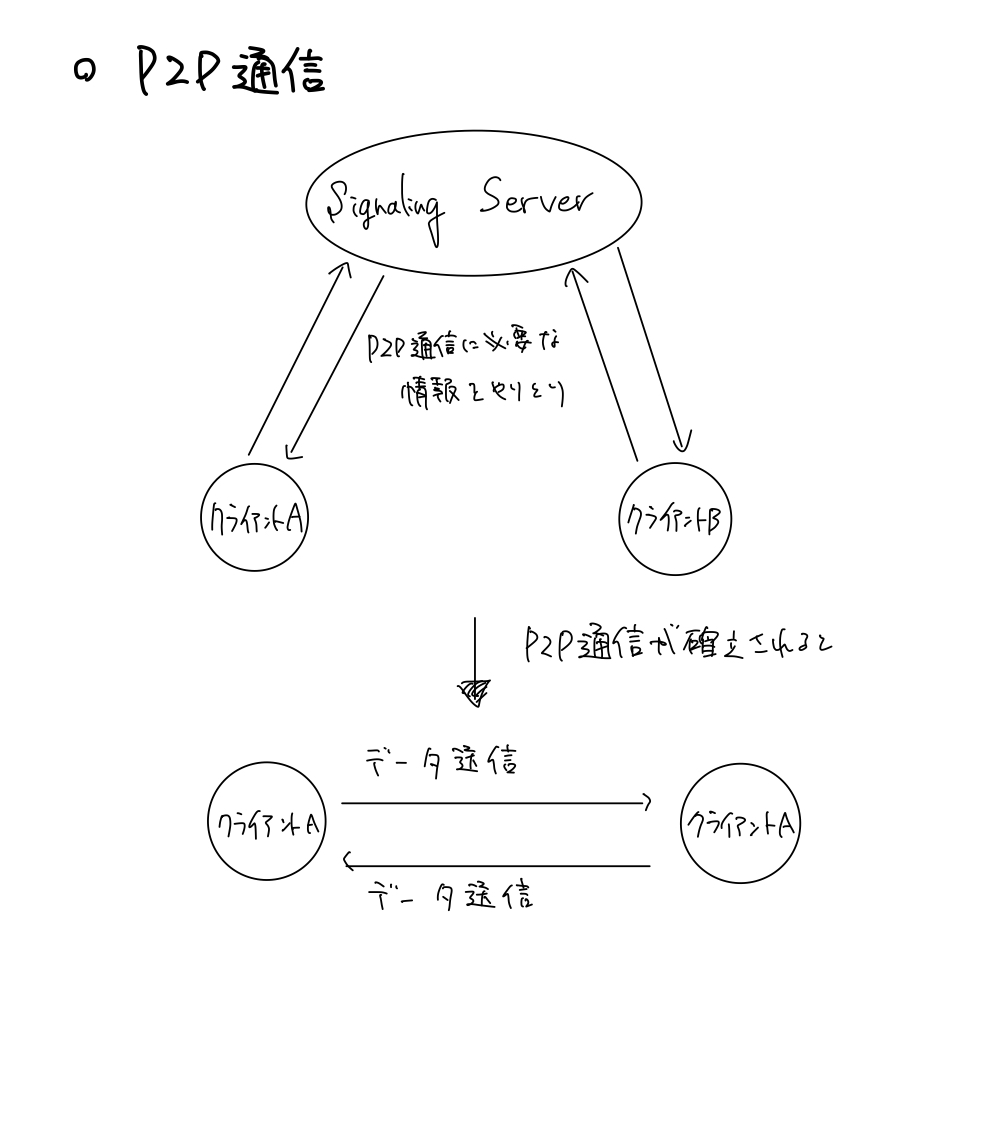 ○ P2P通信
Signaling Server
P2P通信に必要な
情報をやりとり
クライアントA
クライアントB
P2P通信が確立されると
データ送信
クライアントA
クライアントA
データ送信